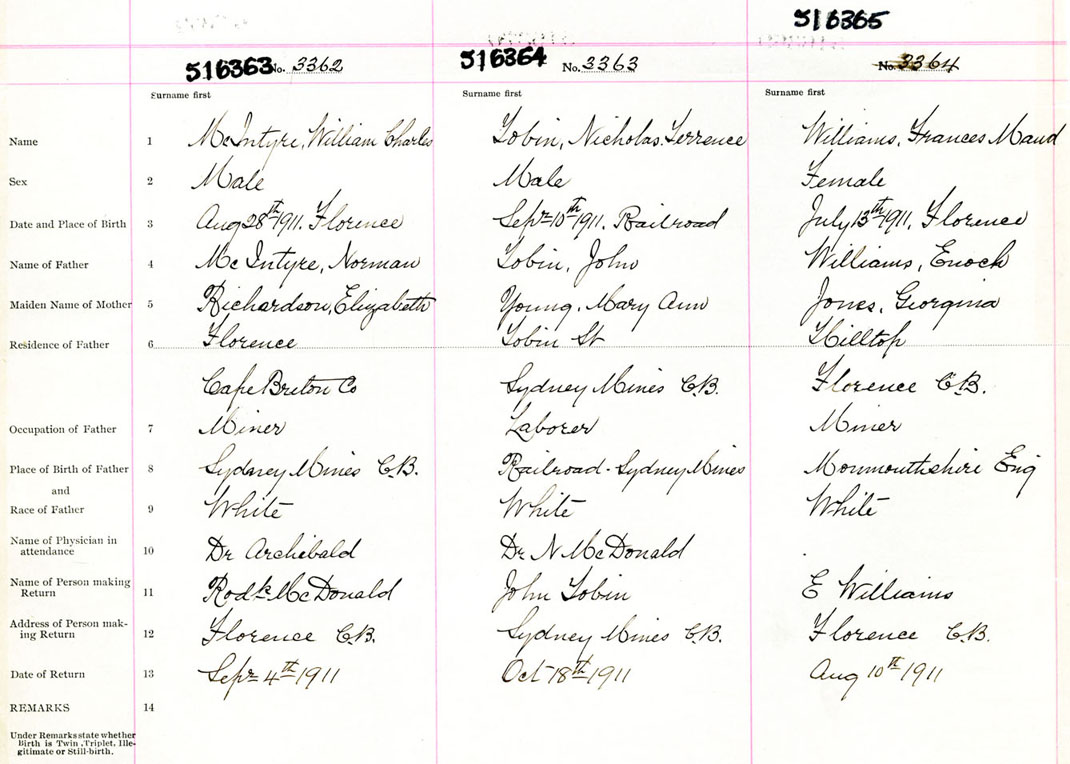 516365
516363 No. 3362 516364 No. 3363 No. 3364
Surname first Surname first Surname first
Name 1 McIntyre, William Charles Tobin, Nicholas Terrence Williams, Frances Maud
Sex 2 Male Male Female
Date and Place of Birth 3 Aug 28th 1911. Florence Sept 10th 1911. Railroad July 13th 1911, Florence
Name of Father 4 McIntyre, Norman Tobin, John Williams, Enoch
Maiden Name of Mother 5 Richardson, Elizabeth Young, Mary Ann Jones, Georgina
Residence of Father 6 Florence Tobin St Hilltop
Cape Breton Co Sydney Mines C.B. Florence C.B.
Occupation of Father 7 Miner Laborer Miner
Place of Birth of Father 8 Sydney Mines C.B. Railroad - Sydney Mines Monmouthshire Eng
and
Race of Father 9 White White White
Name of Physician in
attendance 10 Dr Archibald Dr N McDonald
Name of Person making
Return 11 Rodk McDonald John Tobin E Williams
Address of Person mak-
ing Return 12 Florence C.B. Sydney Mines C.B. Florence C.B.
Date of Return 13 Sept 4th 1911 Oct 18th 1911 Aug 10th 1911
REMARKS 14
Under Remarks state whether
Birth is Twin, Triplet, Ille-
gitimate or Still-birth.